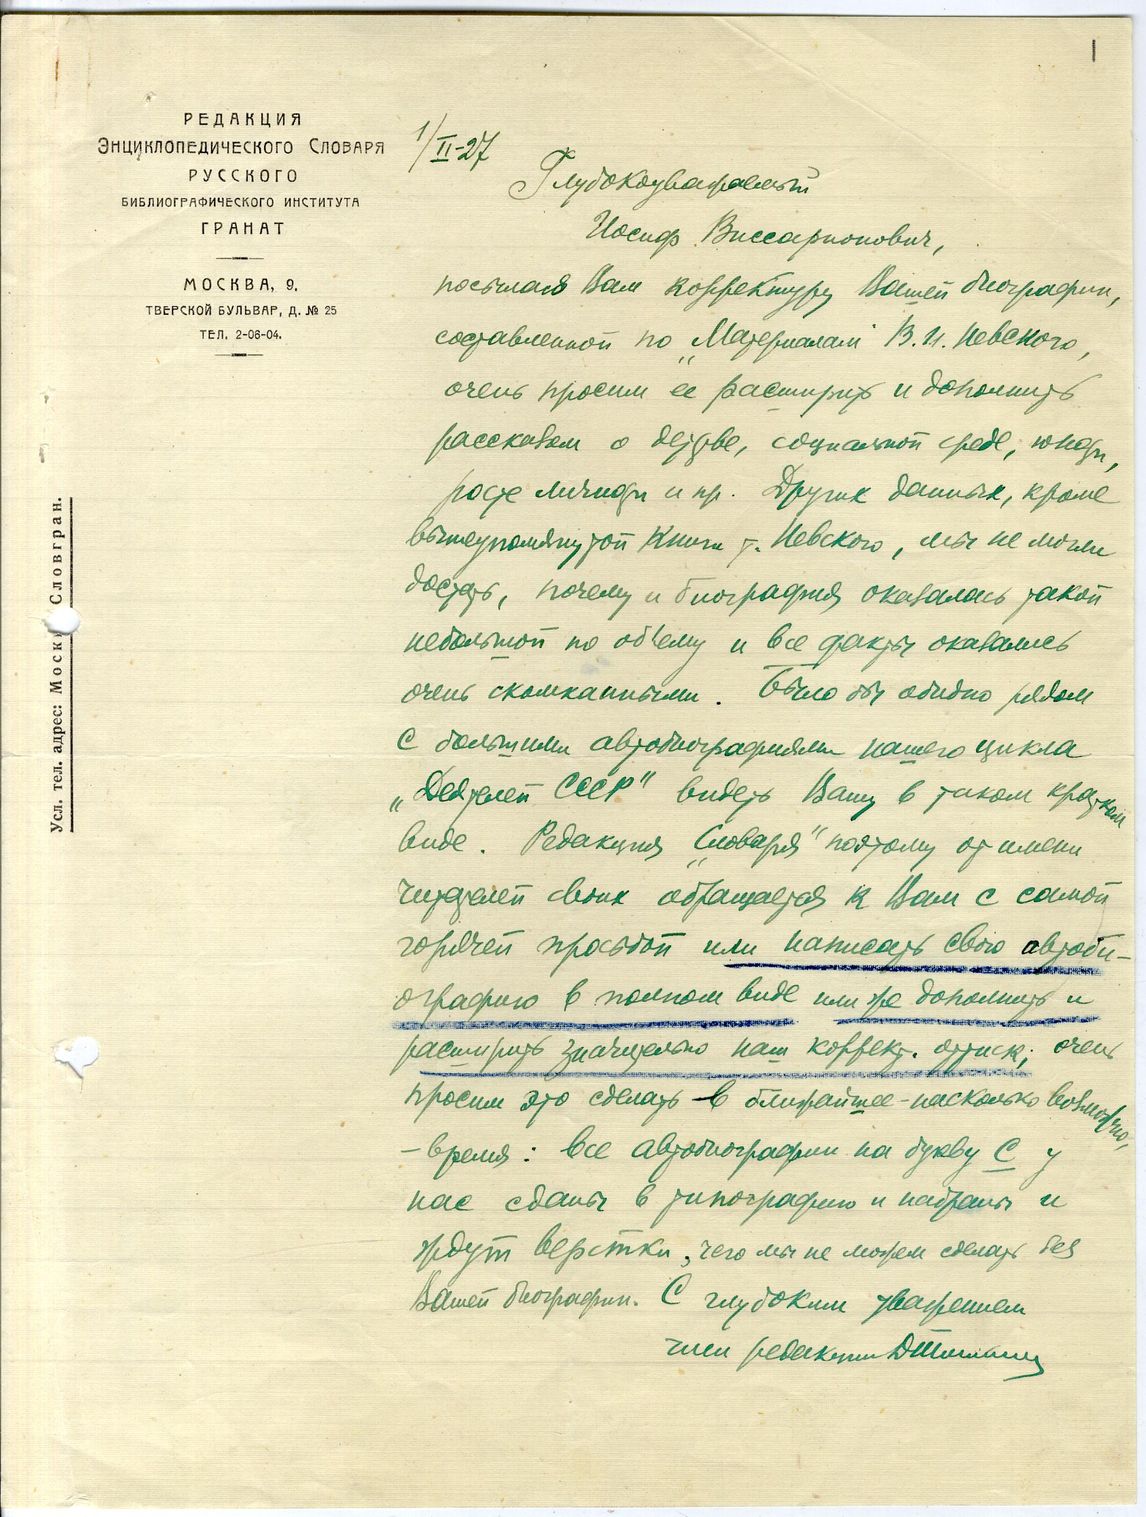 1
РЕДАКЦИЯ
ЭНЦИКЛОПЕДИЧЕСКОГО СЛОВАРЯ
РУССКОГО
БИБЛИОГРАФИЧЕСКОГО ИНСТИТУТА
ГРАНАТ
МОСКВА, 9.
ТВЕРСКОЙ БУЛЬВАР, Д. № 25
ТЕЛ. 2-06-04.
Усл. тел. адрес: Моск Словгран.
1/II-27
Глубокоуважаемый
Иосиф Виссарионович,
посылая Вам корректуру Вашей биографии,
составленной по „Материалам" В. И. Невского,
очень просим ее расширить и дополнить
рассказом о детстве, социальной среде, юности,
росте личности и пр. Других данных, кроме
вышеупомянутой книги т. Невского, мы не могли
достать, почему и биография оказалась такой
небольшой по объему и все факты оказались
очень скомканными. Было бы обидно рядом
с большими автобиографиями нашего цикла
„Деятелей СССР" видеть Вашу в таком кратком
виде. Редакция „Словаря" поэтому от имени
читателей своих обращается к Вам с самой
горячей просьбой или написать свою автоби-
ографию в полном виде или же дополнить и
расширить значительно наш коррект. оттиск; очень
просим это сделать в ближайшее - насколько возможно,
- время: все автобиографии на букву С у
нас сданы в типографию и набраны и
ждут верстки, чего мы не можем сделать без
Вашей биографии. С глубоким уважением
член редакции